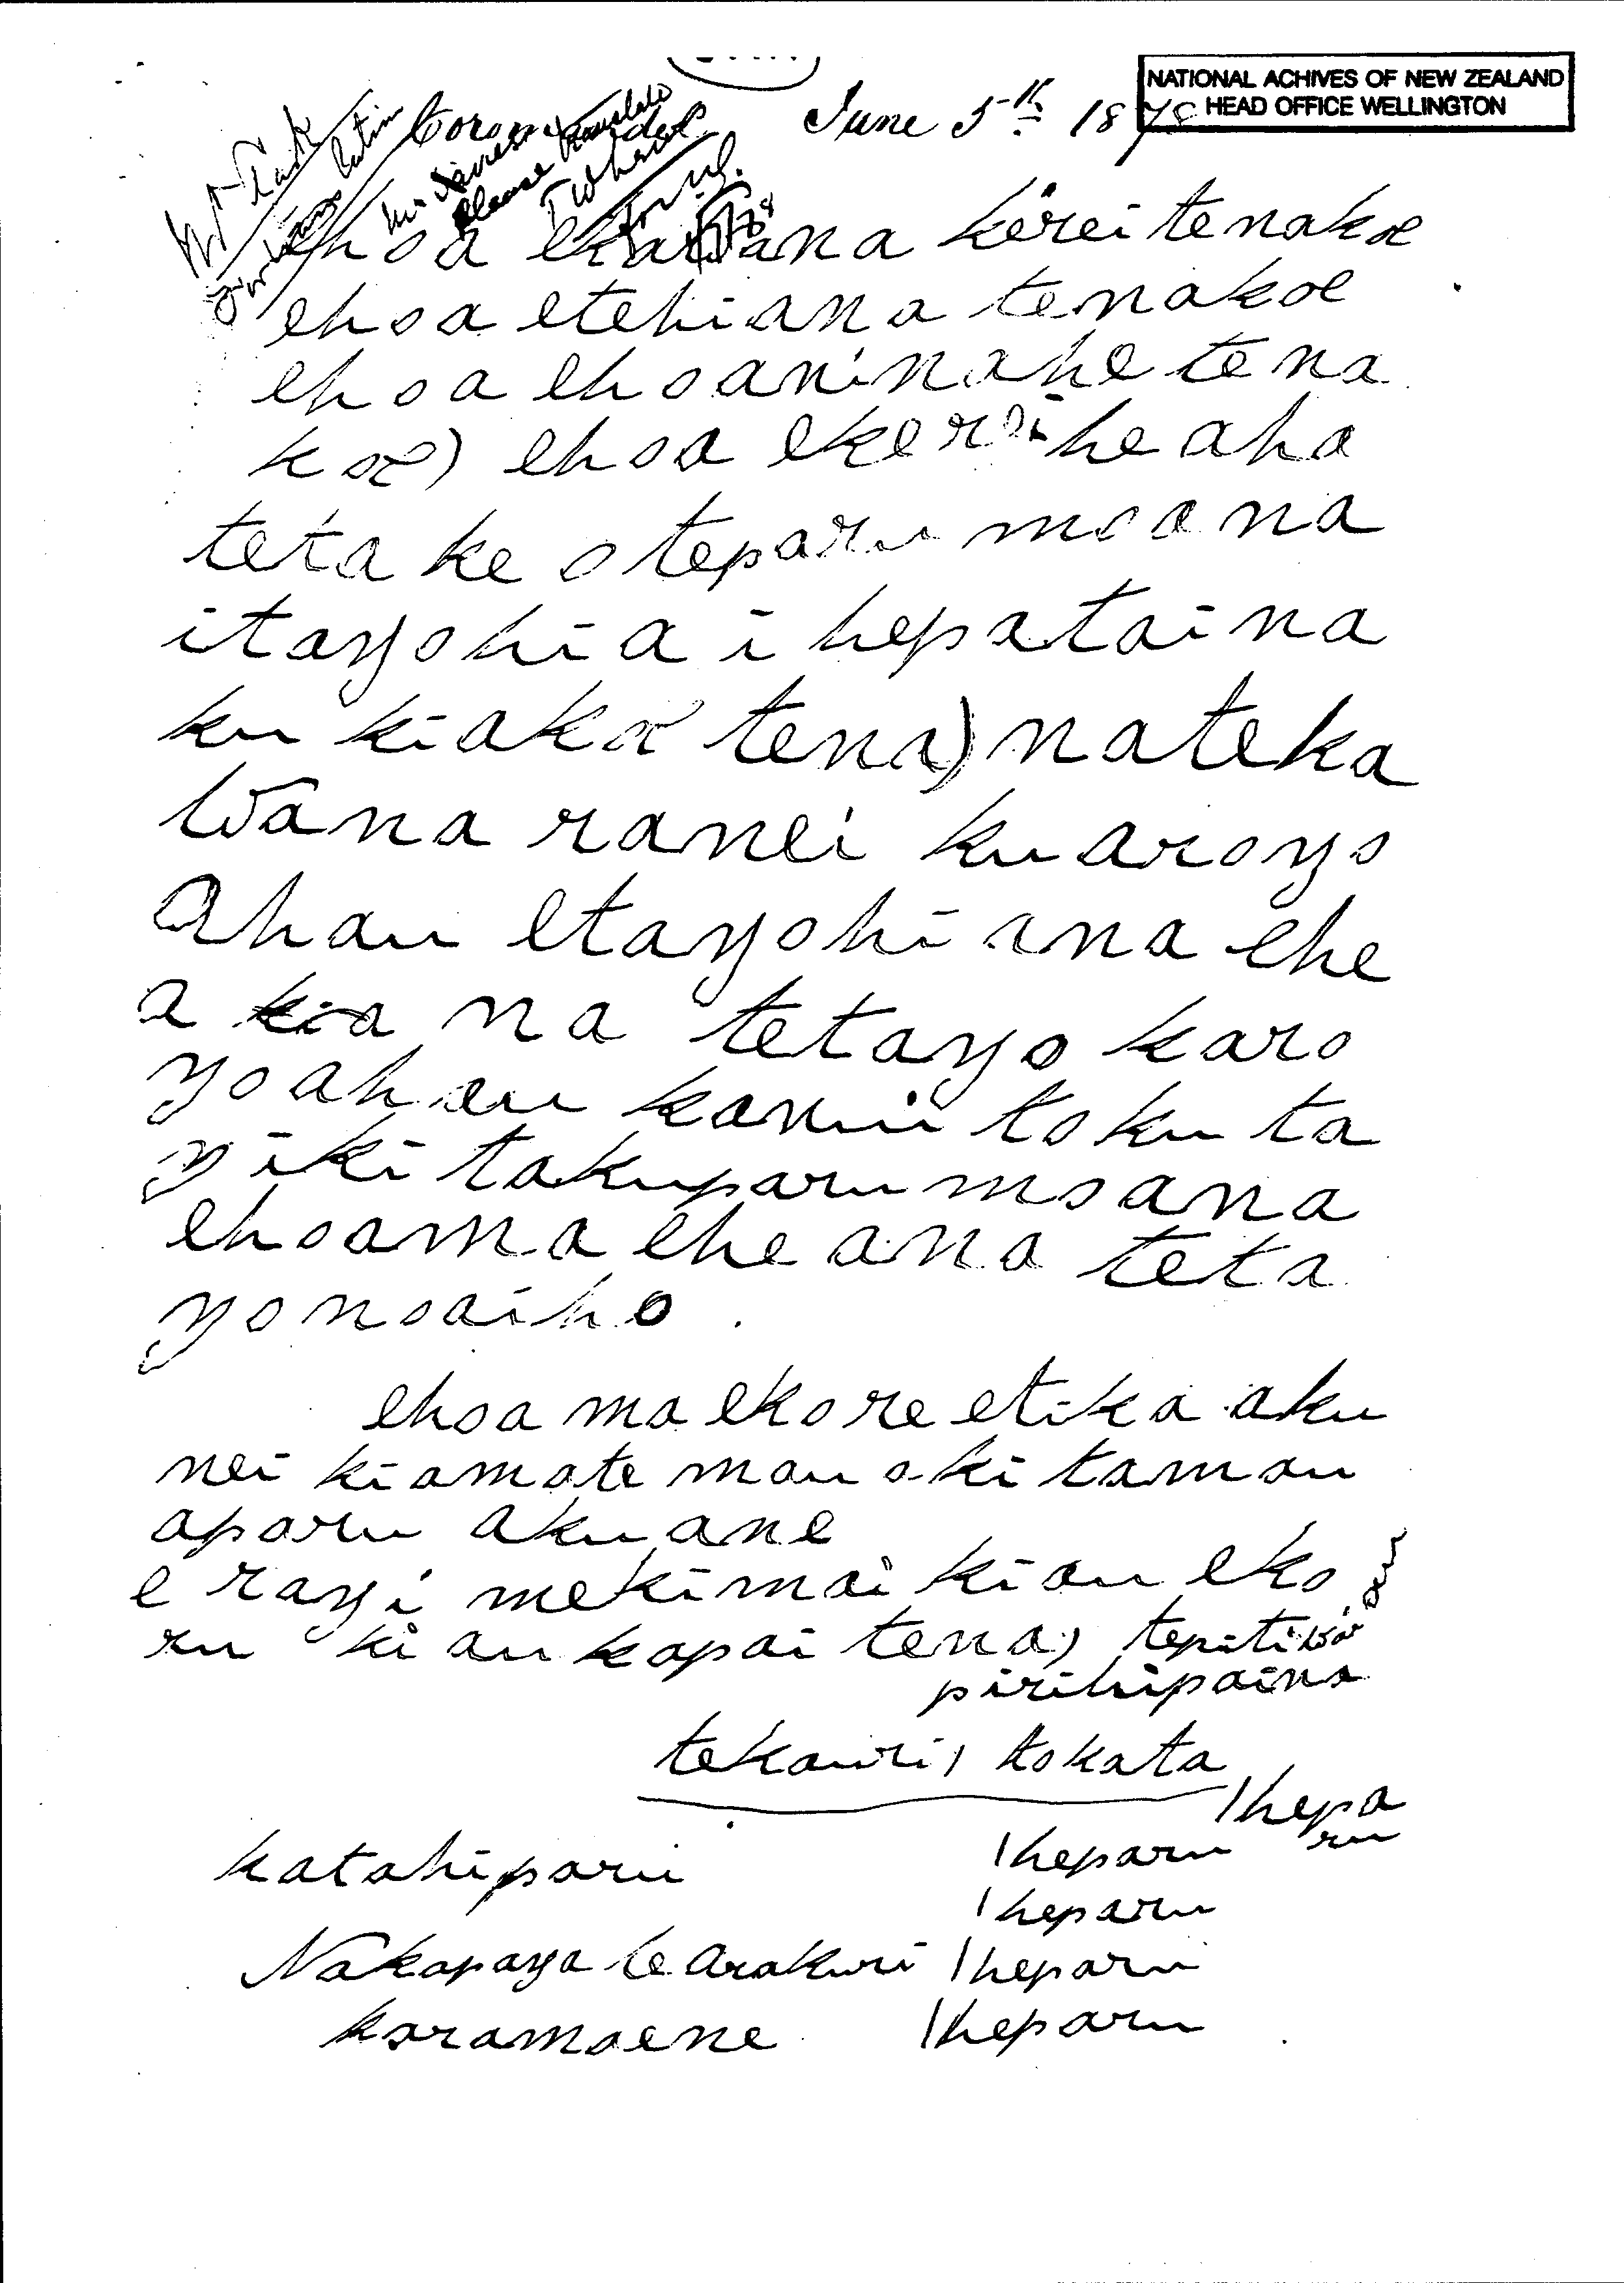 NATIONAL ACHIVES OF NEW ZEALAND
HEAD OFFICE WELLINGTON
June 5th 1878
Please translate
ehoa ekawana kerei tenakoe
ehoa etehiana tenakoe
ehoa ehoaninahe tena
koe) ehoa ekerei he aha
teta ke o teparu moana
itayohia i hepataina
ku kiakoe tena) nateka
wana ranei kuaroyo
Ahau etayohi ana ehe
a kia na tetayo karo
yoahau kanui toku ta
yiki takuparumoana
ehoama ehe ana teta
yonoaiho.
ehoa ma ekore etika aku
nei kiamate mau aki tamau
aparu akuane
e rayi mekimai kiau eko
ru ki au kapai tena) tepitiwa
pirihipaina
tekauri) tokata
1 hepa
ru
katahiparu
1 heparu
1 heparu
Nakapaya te Arakuri 1 heparu
karamaene 1 heparu